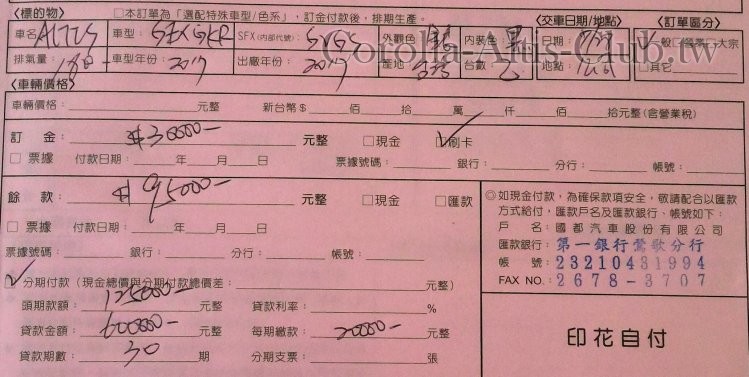 〈標的物〉 □本訂單為「選配特殊車型/色系」,訂金付款後,排期生產。 〈交車日期/地點〉 〈訂單區分〉
車名 ALTIS 車型: SFXGKR SFX(內部代號): 外觀色: 內裝色: 黑 日期: □領業□大宗
排氣量: 車型年份: 2017 出廠年份: 2017 產地: 台數: 地點: 公司 □其它
Corolla-Altis-Club.tw
〈車輛價格〉
車輛價格: 元整 新台幣$ 佰 拾 萬 仟 佰 拾元整(含營業稅)
訂 金: $30000- 元整 □現金 ☑刷卡
□票據 付款日期: 年 月 日 票據號碼: 銀行: 分行: 帳號:
餘 款: $95000- 元整 □現金 □匯款
□票據 付款日期: 年 月 日
票據號碼: 銀行: 分行: 帳號:
☑分期付款(現金總價與分期付款總價差: 元整)
頭期款額: 125000- 元整 貸款利率: %
貸款金額: 600000- 元整 每期繳款: 20000- 元整
貸款期數: 30 期 分期支票: 張
◎如現金付款,為確保款項安全,敬請配合以匯款
方式給付,匯款戶名及匯款銀行、帳號如下:
戶 名:國都汽車股份有限公司
匯款銀行:第一銀行鶯歌分行
帳 號:23210431994
FAX NO.:2678-3707
印花自付